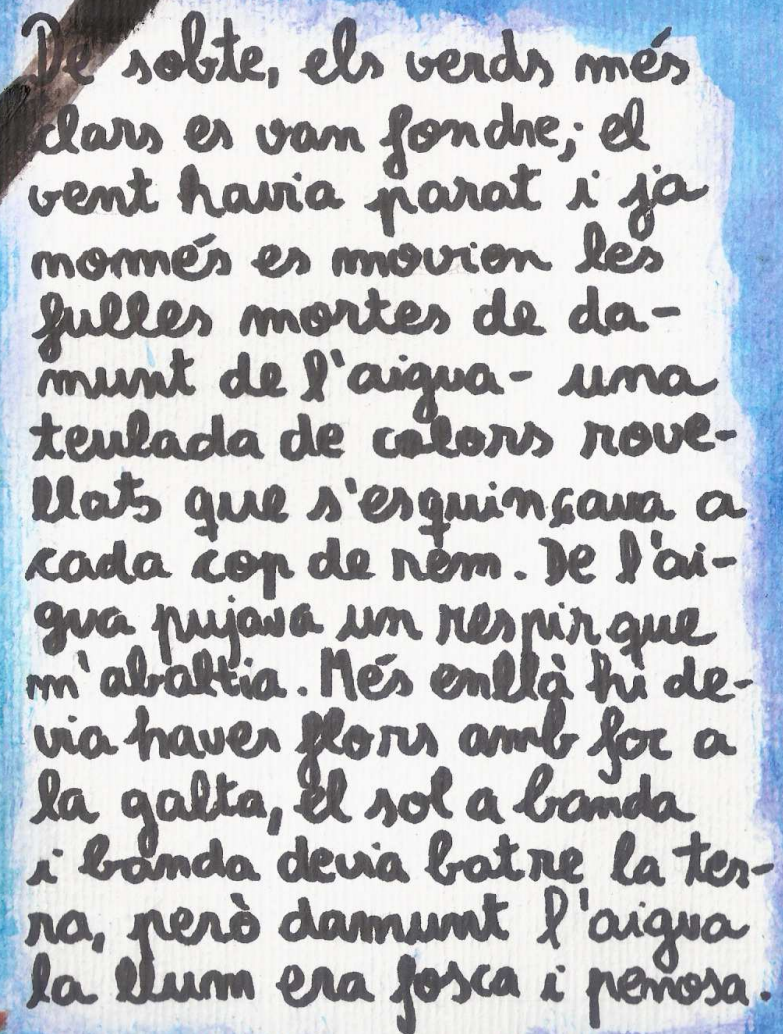 De sobte, els verds més
clars es van fondre; el
vent havia parat i ja
només es movien les
fulles mortes de da-
munt de l'aigua- una
teulada de colors rove-
llats que s'esquinçava a
cada cop de rem. De l'ai-
gua pujava un respir que
m'abaltia. Més enllà hi de-
via haver flors amb foc a
la galta, el sol a banda
i banda devia batre la ter-
ra, però damunt l'aigua
la llum era fosca i penosa.